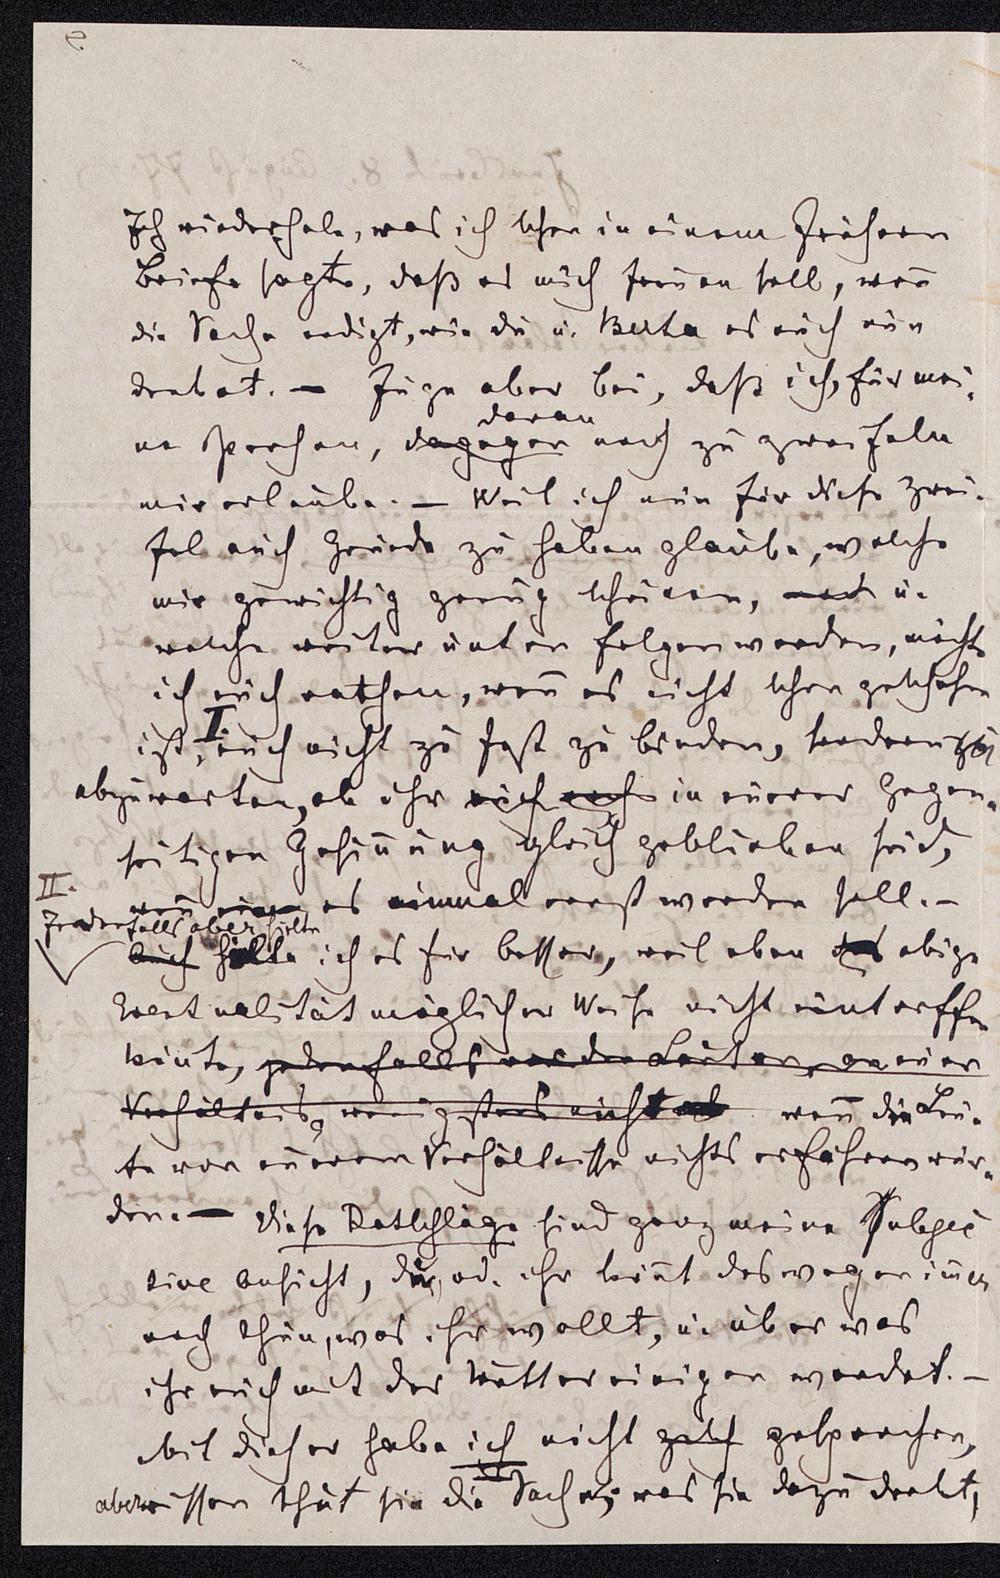 Ich wiederhole, was ich schon in einem frühern
Briefe sagte, daß es mich freuen soll, wenn
die Sache endigt, wie du u. Berta es euch nun
denket. — Füge aber bei, daß ich, für mei-
ne Person, dagegen daran noch zu zweifeln
mir erlaube. — Weil ich nun für diese Zwei-
fel auch Gründe zu haben glaube, welche
mir gewichtig genug scheinen, u.
welche weiter unten folgen werden, möchte
ich euch rathen, wenn es nicht schon geschehen
ist, I euch nicht zu fest zu binden, sondern
abzuwarten, ob ihr euch noch in euerer gegen-
seitigen Gesinnung gleich geblieben seid,
wenn einm es einmal ernst werden soll. —
II.
Jedenfalls aber hielte
Auch hielte ich es für besser, weil eben das obige
Eventualität möglicher Weise nicht eintreffen
könnte, jedenfalls vor den Leuten, an euer
Verhältnis, wenigstens nicht wenn die Leu-
te von euerem Verhältnisse nichts erfahren wür-
den. — Diese Rathschläge sind ganz meine Subjec
tive Ansicht, du, od. ihr könnt deswegen immer
noch thun, was ihr wollt, u. über was
ihr euch mit der Mutter einigen werdet. —
Mit dieser habe ich nicht gesprochen,
aber wissen thut sie die Sache; was sie dazu denkt,